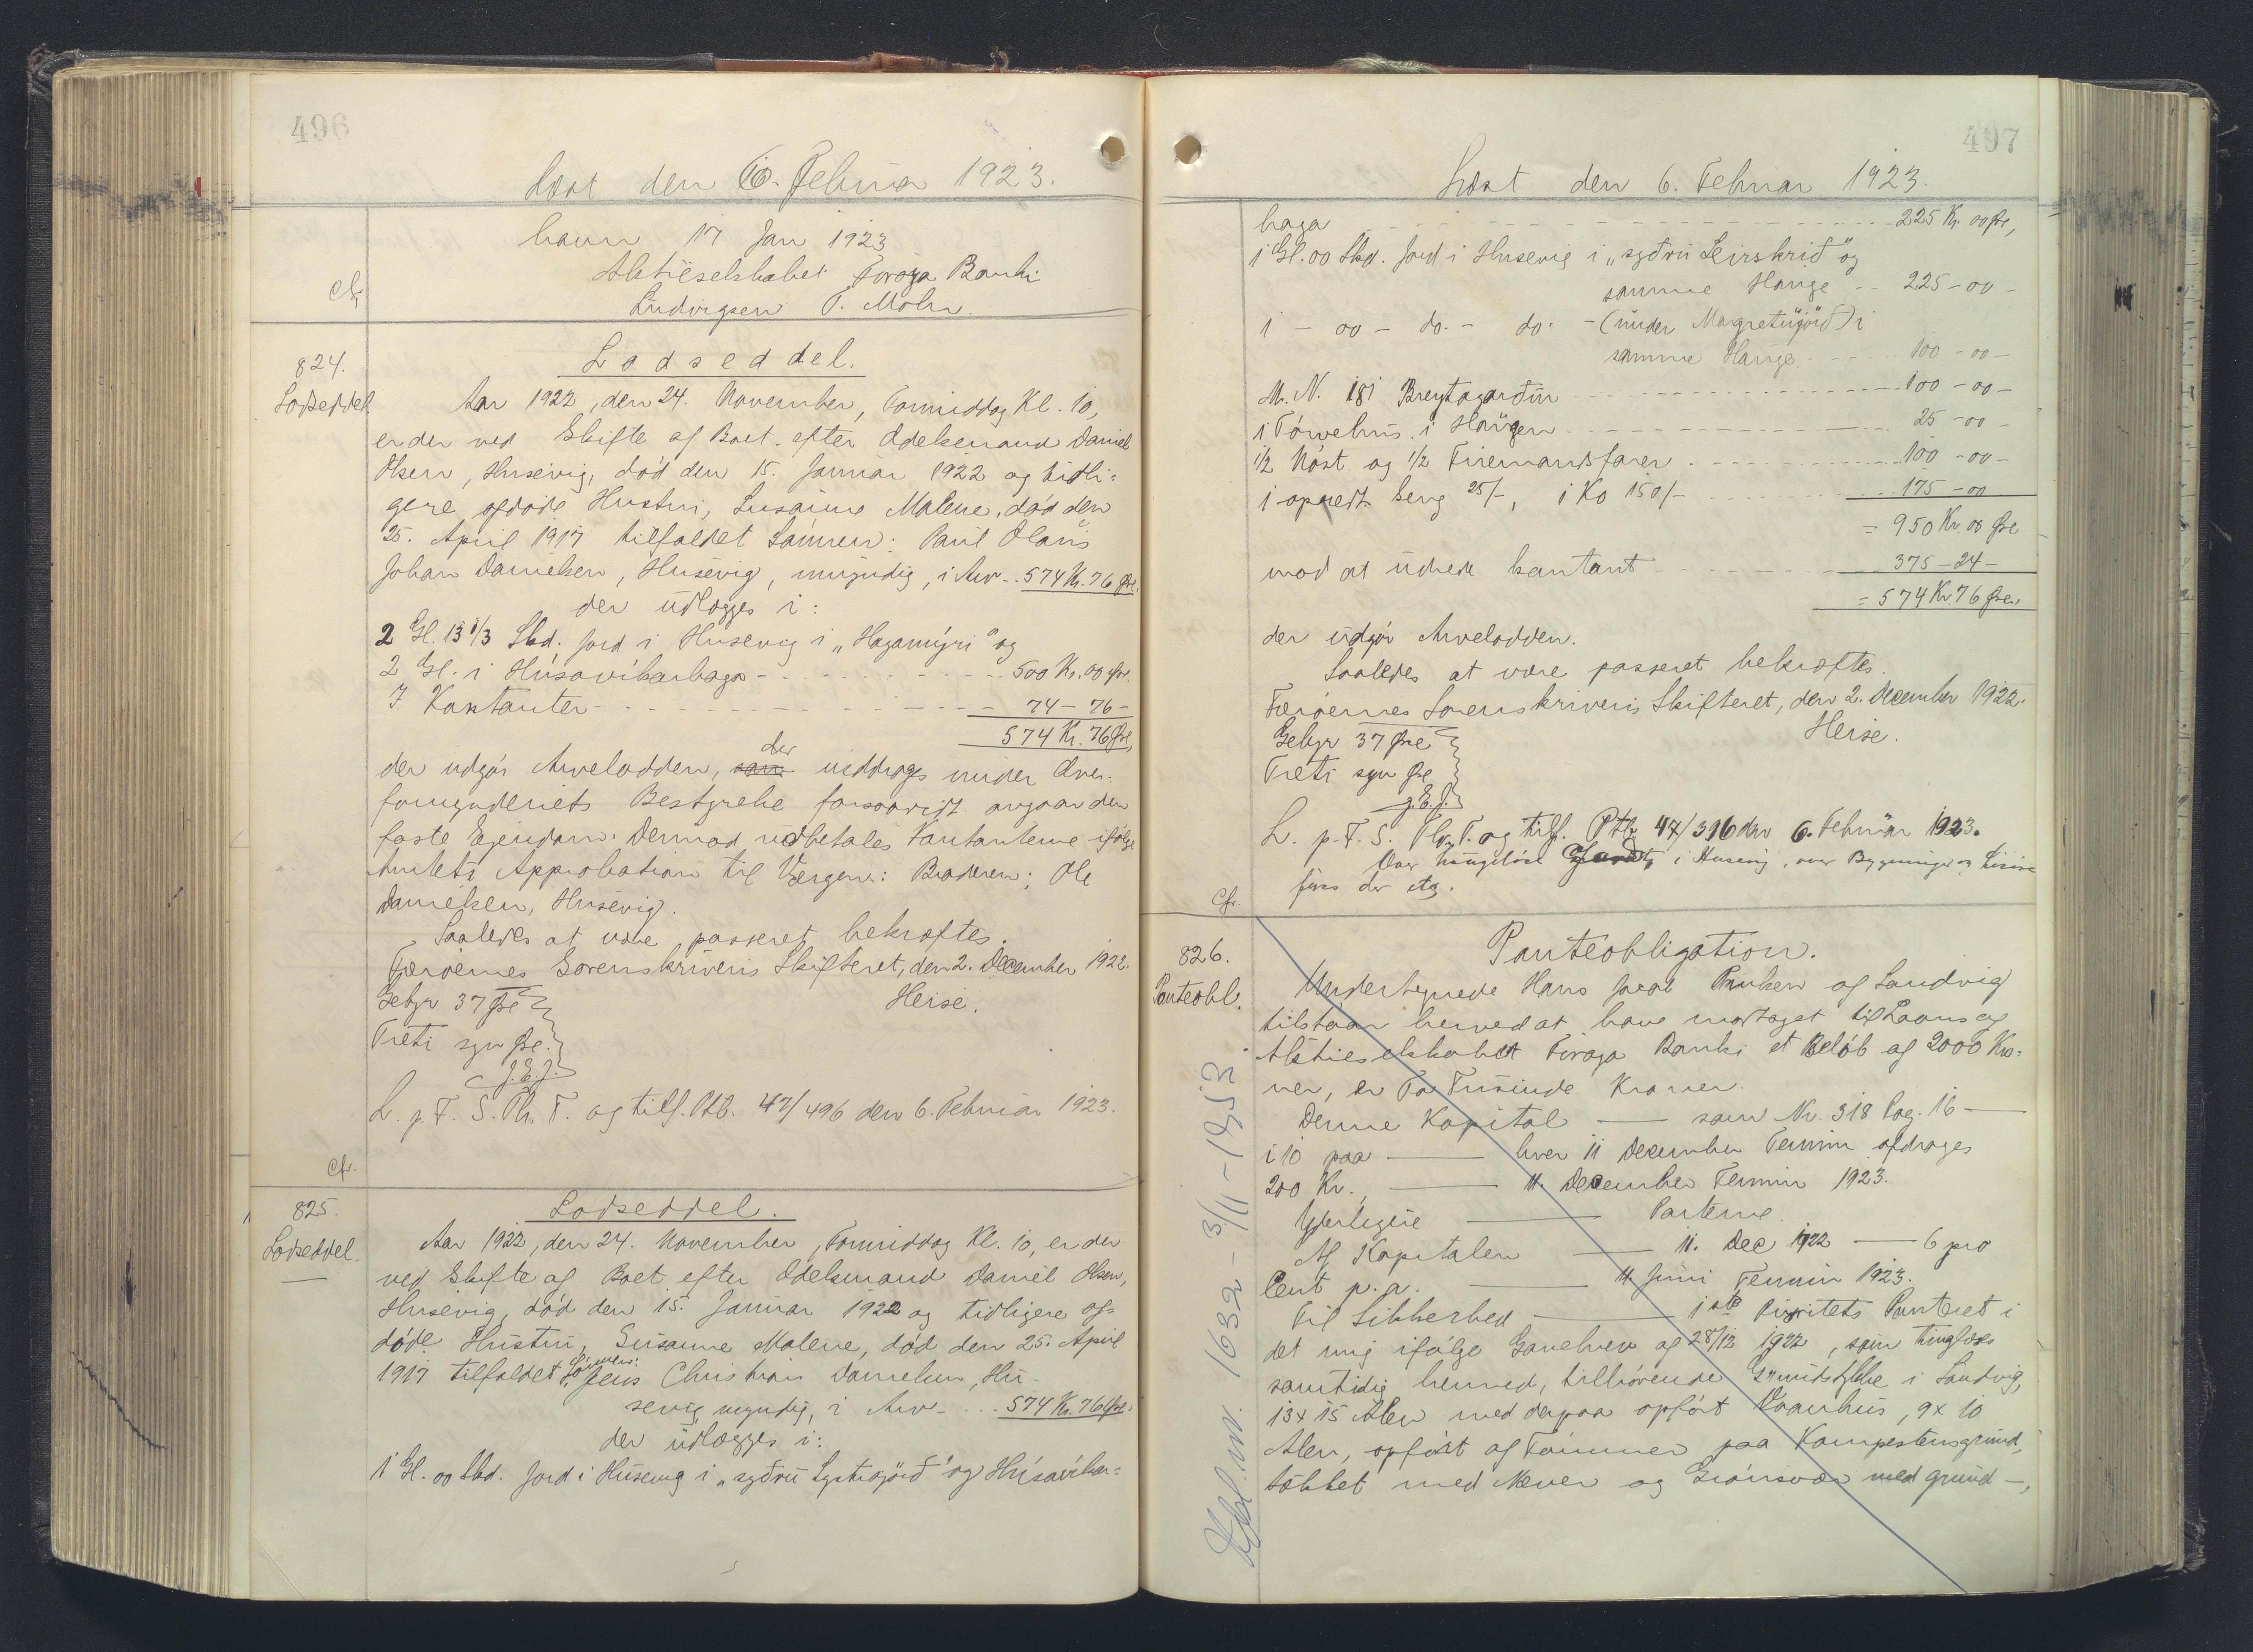 496
Læst den 6. Februar 1923.
havn 17 Jan 1923
Aktieselskabet Føroya Banki
Cfr.
Ludvigsen P. Mohr.
824.
Lodseddel
Lodseddel.
Aar 1922, den 24. November, Formiddag Kl. 10,
er der ved Skifte af Boet efter Odelsmand Daniel
Olsen, Husevig, død den 15. Januar 1922 og tidli-
gere afdøde Hustru, Susanne Malene, død den
25. April 1917 tilfaldet Sønnen: Paul Olaus
Johan Danielsen, Husevig, umyndig, i Arv - 574 Kr. 76 Øre.
der udlægges i:
2 Gl. 13 1/3 Skd. Jord i Husevig i „Hagamýri" og
2 Gl. i Húsavíkarhaga - 500 Kr. 00 Øre.
I Kontanter - 74 - 76 -
574 Kr. 76 Øre,
der udgør Arvelodden, som der inddrages under Over-
formynderiets Bestyrelse forsaavidt angaar den
faste Ejendom. Dermod udbetales Kontanterne ifølge
Amtets Approbation til Værgen: Broderen: Ole
Danielsen, Husevig.
Saaledes at være passeret bekræftes.
Færøernes Sorenskriveris Skifteret, den 2. December 1922.
Gebyr 37 Øre
Heise.
Treti syv Øre.
J.E.J.
L. p. F. S. Th. T. og tilf. Ptb. 47/496 den 6. Februar 1923.
Cfr.
825.
Lodseddel.
Lodseddel.
Aar 1922, den 24. November, Formiddag Kl. 10, er der
ved Skifte af Boet efter Odelsmand Daniel Olsen,
Husevig, død den 15. Januar 1922 og tidligere af-
døde Hustru, Susanne Malene, død den 25. April
1917 tilfaldet Sønnen: Jens Christian Danielsen, Hu-
sevig, myndig, i Arv - 574 Kr. 76 Øre.
der udlægges i:
1 Gl. 00 Skd. Jord i Husevig i „syðru Lystagørð" og Húsavíkar-
497
Læst den 6. Februar 1923.
haga - 225 Kr. 00 Øre,
1 Gl. 00 Skd. Jord i Husevig i „syðru Leirskrið" og
samme Hauge - 225 - 00 -
1 - 00 - do. - do. - (under Magretugørð) i
samme Hauge - 100 - 00 -
M. N. 181 Breytagarðin - 100 - 00 -
1 Tørvehus i Haugen - 25 - 00 -
1/2 Nóst og 1/2 Firemandsfarer - 100 - 00 -
1 opredt Seng 25/-, 1 Ko 150/- 175 - 00
= 950 Kr. 00 Øre
mod at udrede kontant - 375 - 24 -
= 574 Kr. 76 Øre.
der udgør Arvelodden.
Saaledes at være passeret bekræftes.
Færøernes Sorenskriveris Skifteret, den 2. December 1922.
Gebyr 37 Øre
Heise.
Treti syv Øre
J.E.J.
L. p. F. S. Th. T. og tilf. Ptb. 47/396 den 6. Februar 1923.
Daer i Husevig, over Bygninger
der
Cfr.
826.
Panteobl.
Panteobligation.
Undertegnede Hans Jacob Poulsen af Sandvig
tilstaar herved at have modtaget til Laans af
Aktieselskabet Føroya Banki et Beløb af 2000 Kro-
ner, er To Tusinde Kroner.
Denne Kapital — som Nr. 318 Pag. 16 —
i 10 paa — hver 11 December Termin afdrages
200 Kr., — 11. December Termin 1923.
Yderligere — Parterne.
Af Kapitalen — 11. Dec 1922 — 6 pro
Cent p.a. — 11. Juni Termin 1923.
Til Sikkerhed — 1ste Prioritets Panteret i
det mig ifølge Gavebrev af 28/12 1922, som tinglæses
samtidig hermed, tilhørende Grundstykke i Sandvig,
13 x 15 Alen med derpaa opført Vaanhus, 9 x 10
Alen, opført af Tømmer paa Kampestensgrund,
tækket med Næver og Grønsvær med grund —,
1632 - 3/11 - 1953.